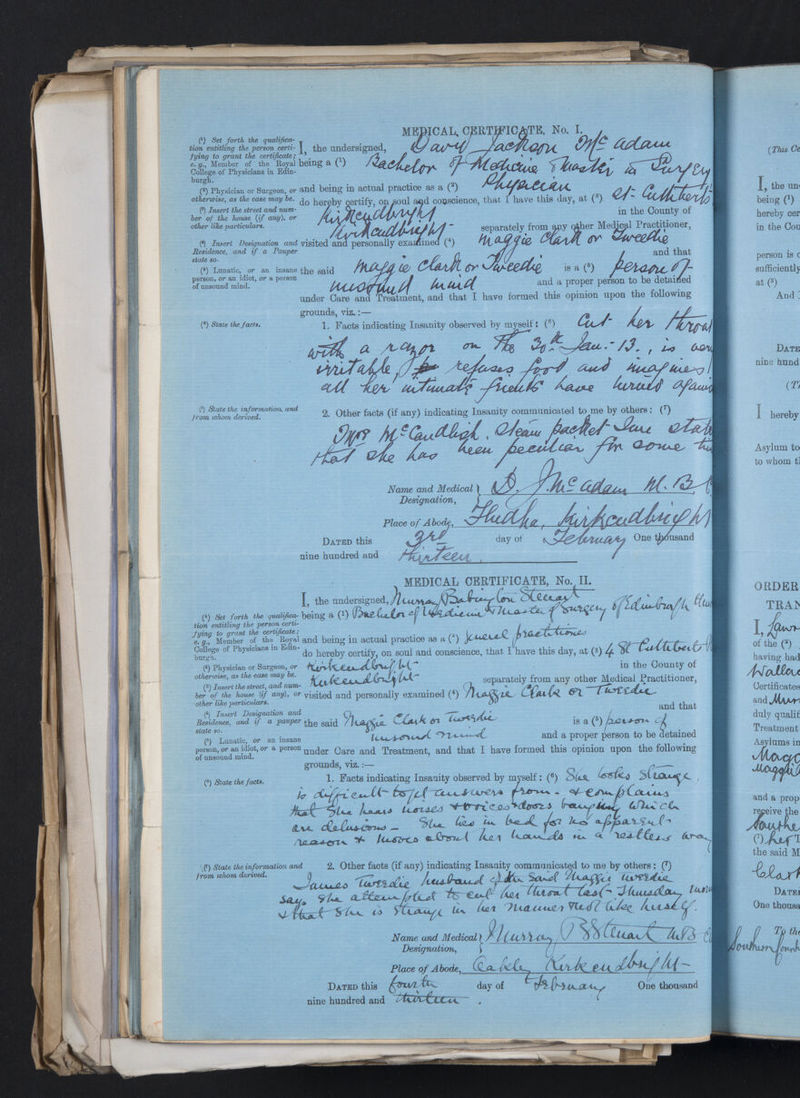 MEDICAL CERTIFICATE, No. I.
(¹) Set forth the qualifica-
tion entitling the person certi-
fying to grant the certificate;
e. g., Member of the Royal
College of Physicians in Edin-
burgh.
I, the undersigned, David Jackson McAdam
being a (¹) Bachelor of Medicine & Master in Surgery
(²) Physician or Surgeon, or
otherwise, as the case may be.
and being in actual practice as a (²) Physician
do hereby certify, on soul and conscience, that I have this day, at (³) St. Cuthberts
(³) Insert the street and num-
ber of the house (if any), or
other like particulars.
Kirkcudbright in the County of
Kirkcudbright separately from any other Medical Practitioner,
(⁴) Insert Designation and
Residence, and if a Pauper
state so.
visited and personally examined (⁴) Maggie Clark or Tweedie
and that
(⁵) Lunatic, or an insane
person, or an idiot, or a person
of unsound mind.
the said Maggie Clark or Tweedie is a (⁵) person of
unsound mind and a proper person to be detained
under Care and Treatment, and that I have formed this opinion upon the following
grounds, viz.:—
(⁶) State the facts.
1. Facts indicating Insanity observed by myself: (⁶) Cut her throat
with a razor on the 30th Jan.-13., is
irritable, refuses food and imagines
all her intimate friends have turned
(⁷) State the information, and
from whom derived.
2. Other facts (if any) indicating Insanity communicated to me by others: (⁷)
Mrs McCandlish, Steam packet Inn
that she has been peculiar for some
Name and Medical
Designation,
D. J. McAdam M.B.
Place of Abode, Kirkcudbright
DATED this 3rd day of February One thousand
nine hundred and thirteen.
MEDICAL CERTIFICATE, No. II.
I, the undersigned, Murray Babington Steuart
(¹) Set forth the qualifica-
tion entitling the person certi-
fying to grant the certificate;
e. g., Member of the Royal
College of Physicians in Edin-
burgh.
being a (¹) Bachelor of Medicine & Master of Surgery of Edinburgh
and being in actual practice as a (²) General practitioner
do hereby certify, on soul and conscience, that I have this day, at (³) 4 St Cuthbert
(²) Physician or Surgeon, or
otherwise, as the case may be.
Kirkcudbright in the County of
(³) Insert the street, and num-
ber of the house (if any), or
other like particulars.
Kirkcudbright separately from any other Medical Practitioner,
visited and personally examined (⁴) Maggie Clark or Tweedie
and that
(⁴) Insert Designation and
Residence, and if a pauper
state so.
the said Maggie Clark or Tweedie is a (⁵) person of
unsound mind and a proper person to be detained
(⁵) Lunatic, or an insane
person, or an idiot, or a person
of unsound mind.
under Care and Treatment, and that I have formed this opinion upon the following
grounds, viz.:—
(⁶) State the facts.
1. Facts indicating Insanity observed by myself: (⁶) She looks strange,
is difficult to get answers from - & complains
that she hears noises & voices & doors banging which
are delusions - She lies in bed for no apparent
reason & moves about her hands in a restless way
(⁷) State the information and
from whom derived.
2. Other facts (if any) indicating Insanity communicated to me by others: (⁷)
James Tweedie husband of the said Maggie Tweedie
says she attempted to cut her throat last Thursday
& that she is strange in her manner & not like herself.
Name and Medical
Designation,
Murray B Steuart M.B.
Place of Abode, Oakley Kirkcudbright
DATED this fourth day of February One thousand
nine hundred and thirteen.
(This Ce
I, the un
being (¹)
hereby cer
in the Cou
person is
sufficiently
at (³)
And
DATE
nine hund
I hereby
Asylum to
to whom
ORDER
TRAN
I,
of the (²)
having had
Certificates
and
duly qualif
Treatment
Asylums in
and a prop
receive the
the said M
DATE
One thousa
To the